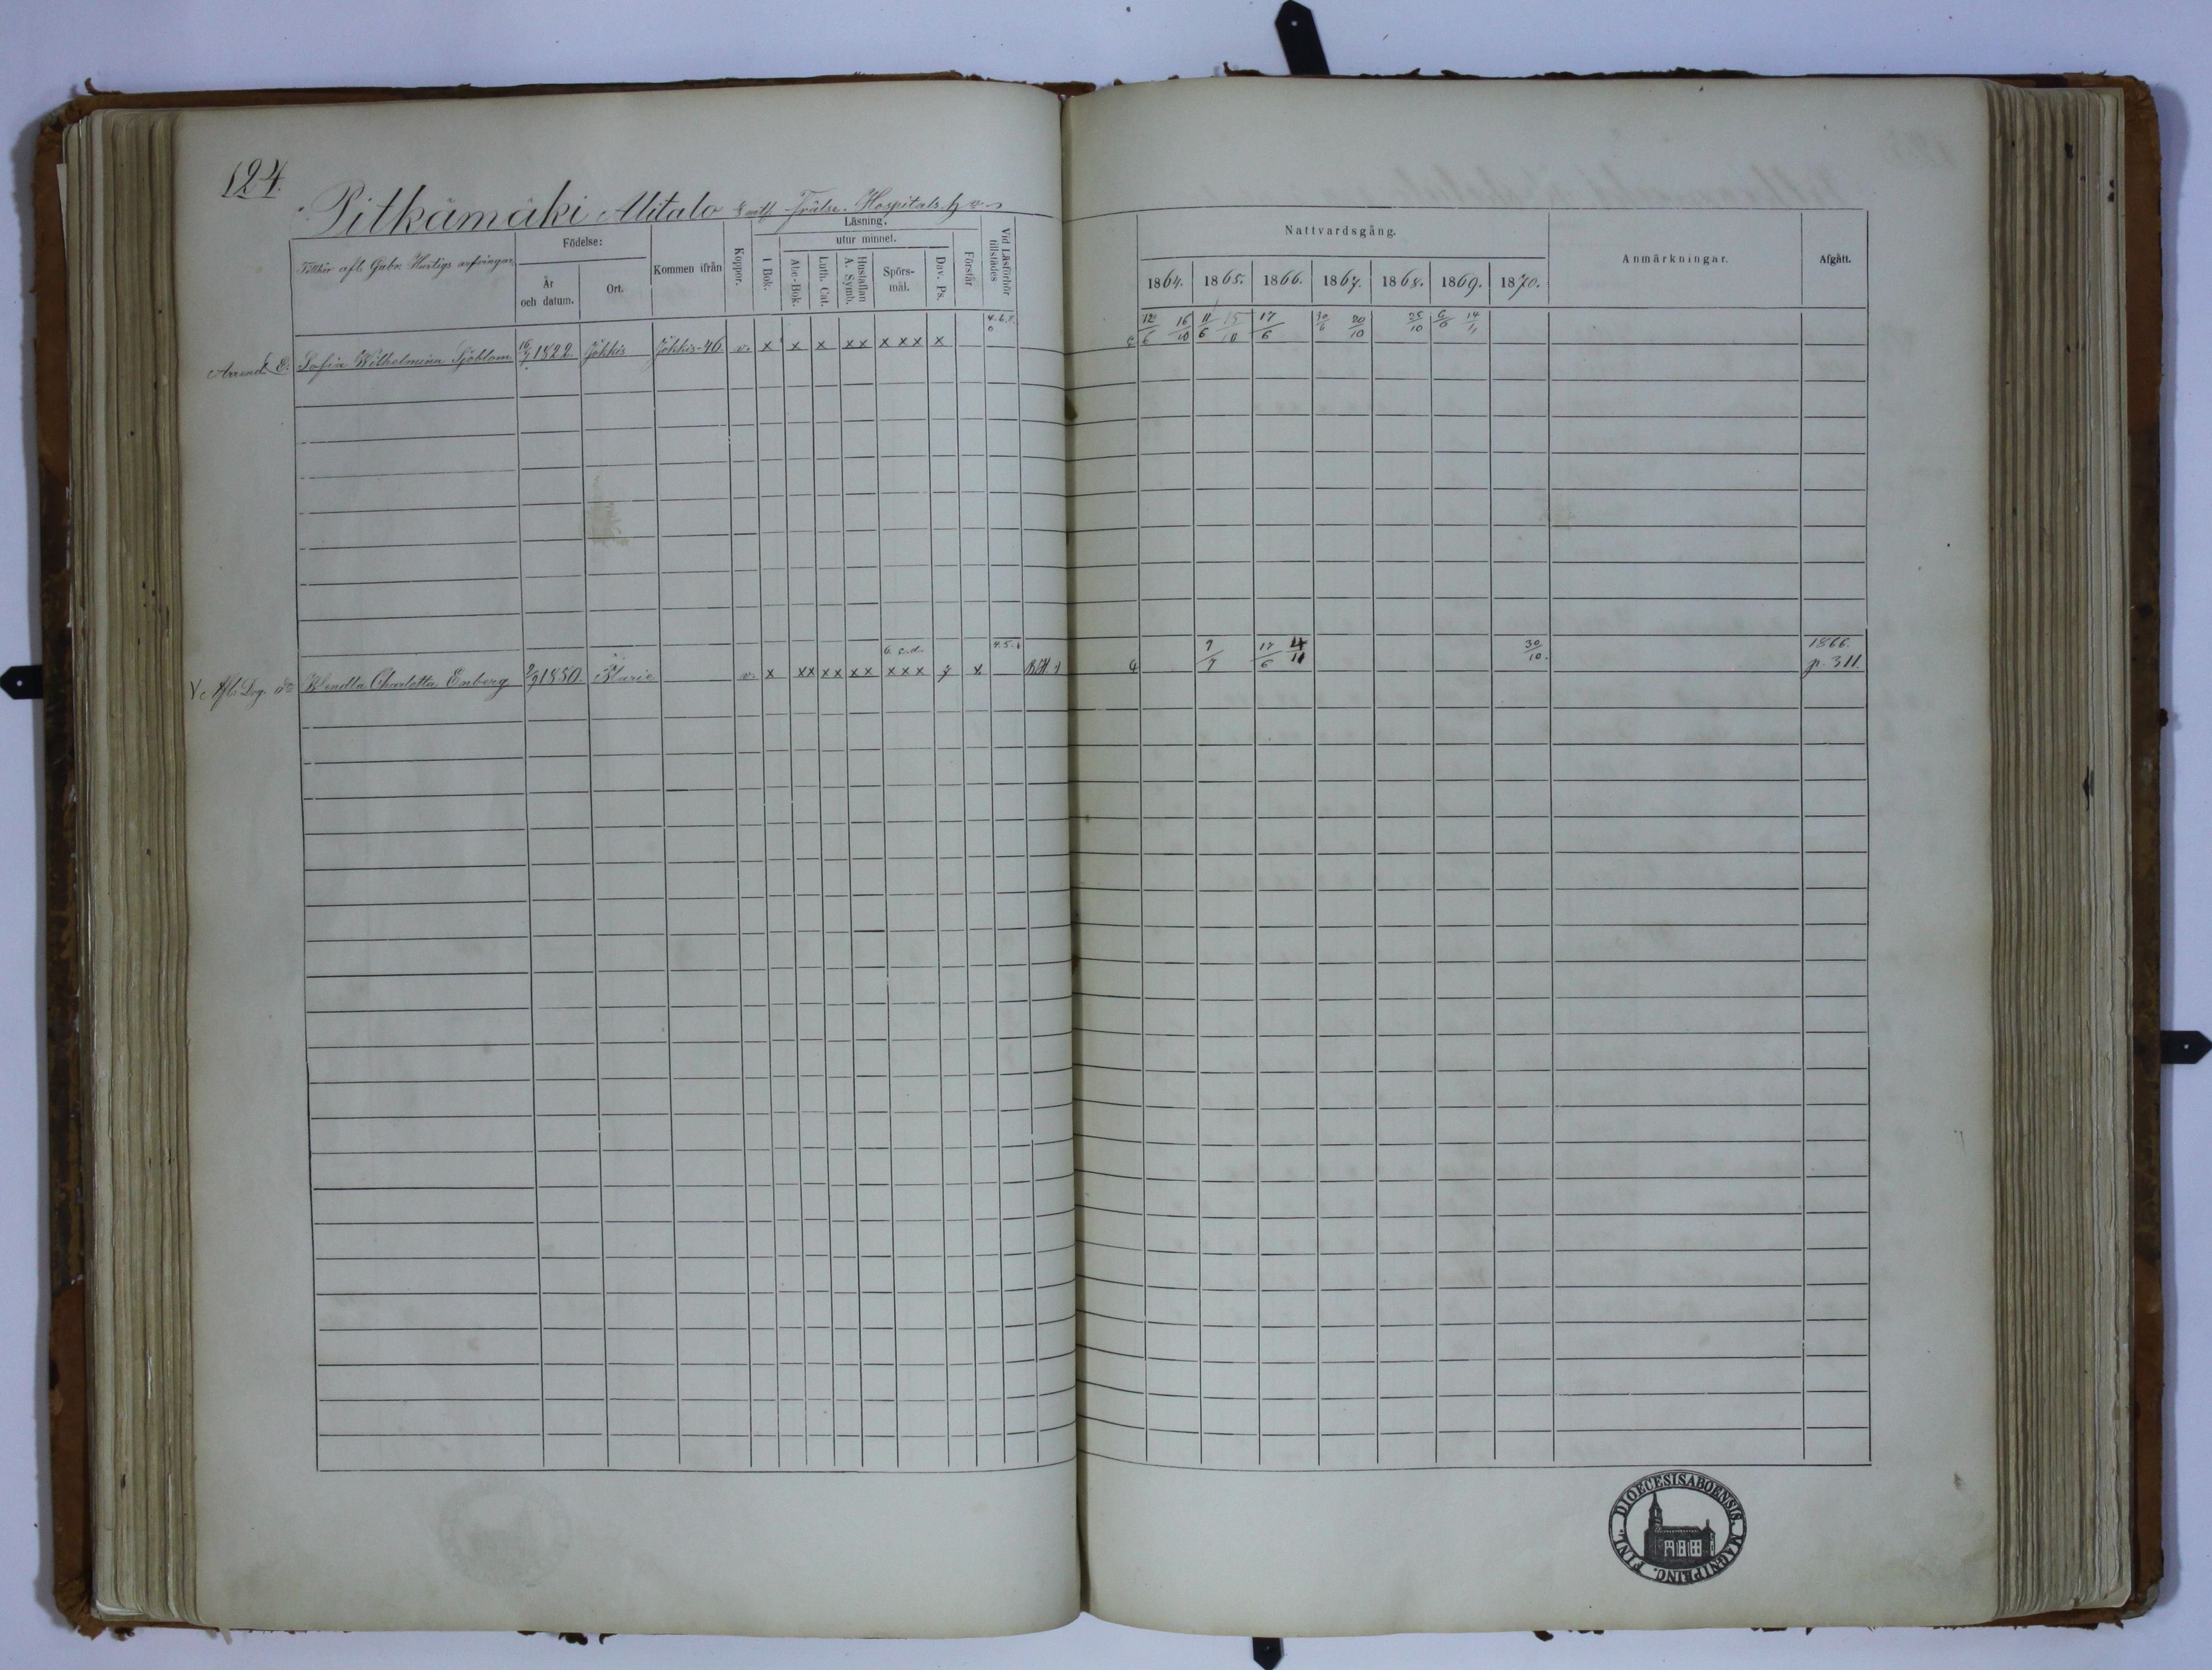 124.
Pitkämäki Alitalo Frälse. Hospitals
Tillhör afl. Gabr. Hurtigs arfvingar
Födelse:
År och datum.
Ort.
Kommen ifrån
Koppor.
Läsning.
I Bok.
utur minnet.
Abc-Bok.
Luth. Cat.
Hustaflan A. Symb.
Spörs-mål.
Dav. Ps.
Förstår
Vid Läsförhör tillstädes
Nattvardsgång.
1864. 1865. 1866. 1867. 1868. 1869. 1870.
Anmärkningar.
Afgått.
Arend. E. Sofia Wilhelmina Sjöblom 16/7 1822 Jokkis Jokkis-46 v. x x x x x x x x x 12/6 16/10 11/6 15/10 17/6 30/6 20/10 25/10 6/6 14/11
Afl. Dog. do Wendla Charlotta Enberg 2/9 1850 S:t Marie v. x x x x x x x x x x 7 x 9/7 17/6 4/11 30/10. 1866. p. 311.
FINL. DIOECESIS ABOENSIS. MAGNI PRINC.